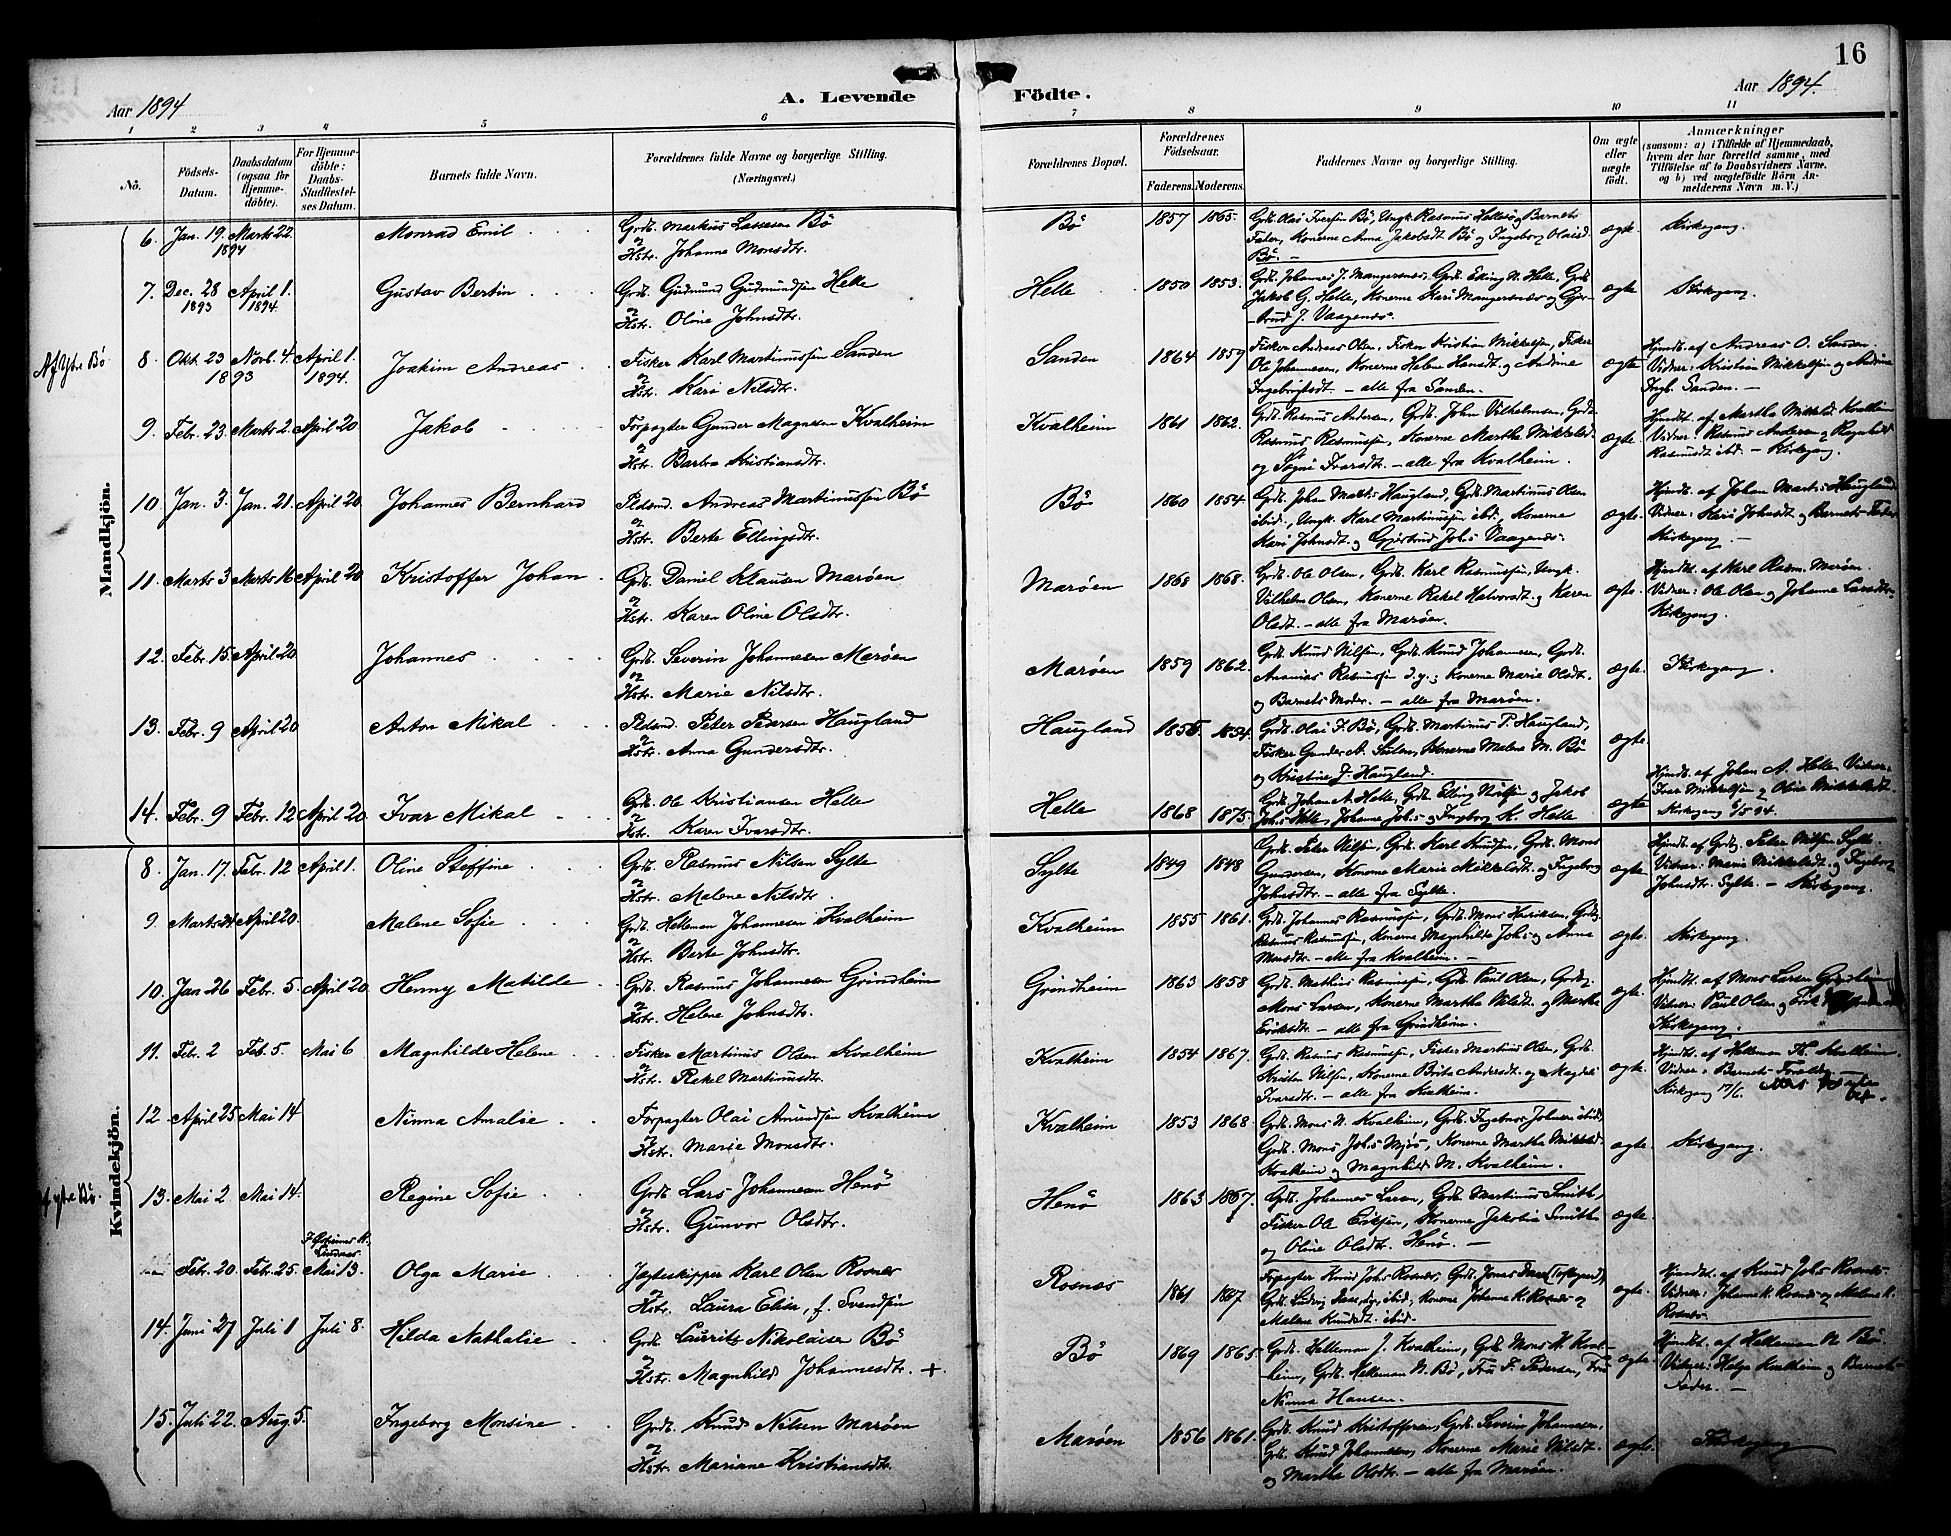 16
Aar 1894
A. Levende Födte.
Aar 1894.
1 2 3 4 5 6 7 8 9 10 11
No.
Födsels-Datum.
Daabsdatum (ogsaa for Hjemme-döbte).
For Hjemme-döbte: Daabs-Stadfæstel-ses Datum.
Barnets fulde Navn.
Forældrenes fulde Navne og borgerlige Stilling.
(Næringsvei.)
Forældrenes Bopæl.
Forældrenes Födselsaar.
Faderens. Moderens.
Faddernes Navne og borgerlige Stilling.
Om ægte eller uægte födt.
Anmærkninger
(saasom: a) i Tilfælde af Hjemmedaab, hvem der har forrettet samme, med Tilföielse af to Daabsvidners Navne, og b) ved uægtefödte Börn An-melderens Navn m. V.)
Mandkjön.
6. Jan. 19. 1894 Marts 22. Monrad Emil Grdb. Markus Lassesen Bö
og Hstr. Johanne Monsdtr.
Bö 1857 1865. Grdb. Olai Iversen Bö, Ungk. Rasmus Hellesö og Barnets
Fader, Konerne Anna Jakobsdt. Bö og Ingeborg Olaisd. Bö. — ægte Kirkegang.
7. Dec. 28 1893 April 1. 1894. Gustav Bertin Grdb. Gudmund Gudmundsen Helle
og Hstr. Oline Johnsdtr.
Helle 1850 1853. Grdb. Johannes J. Mangersnes, Grdb. Elling N. Helle, Grdb.
Jakob G. Helle, Konerne Kari Mangersnes og Gjer-
trud J. Vaagenes. ægte Kirkegang.
Af Ytre Bö 8. Okt. 23 1893 Novb. 4. April 1. 1894. Joakim Andreas Fisker Karl Martinussen Sanden
og Hstr. Kari Nilsdtr.
Sanden 1864 1859 Fisker Andreas Olsen, Fisker Kristian Mikkelsen, Fisker
Ole Johannesen, Konerne Helene Hansdt. og Andrine
Ingebrigtsdt. — alle fra Sanden. ægte Hjmdt. af Andreas O. Sanden.
Vidner: Kristian Mikkelsen og Andrine
Ingb. Sanden. —
9. Febr. 23. Marts 2. April 20 Jakob Forpagter Gunder Magnesen Kvalheim
og Hstr. Barbra Kristiansdtr.
Kvalheim 1861 1862. Grdb. Rasmus Andersen, Grdb. John Vilhelmsen, Grdb.
Rasmus Rasmussen, Konerne Martha Mikkelsd.
og Signi Ivarsdt. — alle fra Kvalheim. ægte. Hjmdt. af Martha Mikkelsd. Kvalheim
Vidner: Rasmus Andersen og Ragnhild
Rasmusdt. ibd. — Kirkegang.
10. Jan. 3. Jan. 21. April 20. Johannes Bernhard Pldsmd. Andreas Martinussen Bö
og Hstr. Berte Ellingsdtr.
Bö 1860 1854. Grdb. Johan Marts Haugland, Grdb. Martinus Olsen
ibid., Ungk. Karl Martinussen ibd., Konerne
Kari Johnsdt. og Gjertrud Johs Vaagenes. ægte. Hjmdt. af Johan Marts Haugland
Vidner: Kari Johnsdt. og Barnets Fader
Kirkegang. —
11. Marts 3 Marts 16 April 20 Kristoffer Johan Grdb. Daniel Klausen Marøen
og Hstr. Karen Oline Olsdtr.
Marøen 1868 1868. Grdb. Ole Olsen, Grdb. Karl Rasmussen, Ungk.
Vilhelm Olsen, Konerne Rakel Halvorsdt. og Karen
Olsdt. — alle fra Marøen. ægte. Hjmdt. af Karl Rasm. Marøen.
Vidner: Ole Olsen og Johanne Larsdtr.
Kirkegang.
12. Febr. 15. April 20 Johannes Grdb. Severin Johannesen Marøen
og Hstr. Marie Nilsdtr.
Marøen 1859 1862. Grdb. Knud Nilsen, Grdb. Knud Johannesen, Grdb.
Ananias Rasmussen d.y., Konerne Marie Olsdt.
og Barnets Moder. — alle fra Marøen. ægte Kirkegang.
13. Febr. 9 April 20 Anton Mikal Pldsmd. Peter Pedersen Haugland
og Hstr. Anna Gundersdtr.
Haugland 1855 1854. Grdb. Olai I. Bö, Grdb. Martinus P. Haugland,
Fisker Gunder A. Sulen, Konerne Malene M. Bö
og Kristine J. Haugland. ægte.
14. Febr. 9 Febr. 12 April 20. Ivar Mikal Grdb. Ole Kristiansen Helle
og Hstr. Karen Ivarsdtr.
Helle 1868 1875. Grdb. Johan A. Helle, Grdb. Elling Nilsen og Jakob
Johs Helle, Johanne Johs og Ingeborg K. Helle ægte Hjmdt. af Johan A. Helle. Vidner:
Ivar Mikkelsen og Oline Mikkelsdt.
Kirkegang 6/5 94.
Kvindekjön.
8. Jan. 17. Febr. 12 April 1. Oline Steffine Grdb. Rasmus Nilsen Sylte
og Hstr. Malene Nilsdtr.
Sylte 1849 1848 Grdb. Peter Nilsen, Grdb. Karl Knudsen, Grdb. Mons
Gundersen, Konerne Marie Mikkelsdt. og Ingeborg
Johnsdtr. — alle fra Sylte. ægte. Hjmdt. af Grdb. Peter Nilsen Sylte.
Vidner: Marie Mikkelsdt. og Ingeborg
Johnsdtr. Sylte. — Kirkegang.
9. Marts 24 April 20. Malene Sofie Grdb. Helleman Johannesen Kvalheim
og Hstr. Berte Johnsdtr.
Kvalheim 1855 1861. Grdb. Johannes Rasmussen, Grdb. Mons Henriksen, Grdb.
Rasmus Rasmussen, Konerne Magnhilde Johs og Anna
Monsdtr. — alle fra Kvalheim. — ægte. Kirkegang.
10. Jan 26 Febr. 5. April 20. Henny Matilde Grdb. Rasmus Johannesen Grindheim
og Hstr. Helene Johnsdtr.
Grindheim 1863 1858 Grdb. Mathias Rasmussen, Grdb. Paul Olsen, Grdb.
Mons Larsen, Konerne Martha Nilsdt. og Martha
Eriksdtr. — alle fra Grindheim. ægte. Hjmdt. af Mons Larsen Grindheim
Vidner: Paul Olsen og Erik
Kirkegang.
11. Feb. 2 Feb. 5. Mai 6 Magnhilde Helene Fisker Martinus Olsen Kvalheim
og Hstr. Rakel Martinusdtr.
Kvalheim 1854 1867. Grdb. Rasmus Rasmussen, Fisker Martinus Olsen, Grdb.
Kristen Nilsen, Konerne Brita Andersdt. og Magdeli
Ivarsdtr. — alle fra Kvalheim. ægte. Hjmdt. af Helleman Kvalheim.
Vidner: Barnets Forældre —
Kirkegang 17/6.
12. April 25 Mai 14 Ninna Amalie Forpagter Olai Amundsen Kvalheim
og Hstr. Marie Monsdtr.
Kvalheim 1853 1868 Grdb. Mons N. Kvalheim, Grdb. Ingebrigt Johnsen ibid.,
Grdb. Mons Johs Mjös, Konerne Martha Mikkelsd.
Kvalheim og Magnhild M. Kvalheim. ægte. Kirkegang.
Af ytre Bö. 13. Mai 2. Mai 14. Regine Sofie Grdb. Lars Johannesen Henö
og Hstr. Gunvor Olsdtr.
Henö 1863 1867. Grdb. Johannes Larsen, Grdb. Martinus Smith,
Fisker Ole Eriksen, Konerne Jakobia Smith
og Oline Olsdtr. Henö. — ægte.
Febr. 20. Febr. 25. Mai 13. Olga Marie Jagteskipper Karl Olsen Rosnes
og Hstr. Laura Elise, f. Svendsen
Rosnæs 1861 1867 Forpagter Knud Johs Rosnes, Grdb. Jonas Daae (Toftegaard),
Grdb. Ludvig Daae, ibid, Konerne Johanne K. Rosnes og
Malene Knudsdt. ibid. ægte. Hjmdt. af Knud Johs Rosnes.
Vidner: Johanne K. Rosnes og Malene K.
Rosnes.
14. Juni 27 Juli 1 Juli 8. Hilda Nathalie Grdb. Lauritz Nikolaisen Bö
og Hstr. Magnhild Johannesdtr. +
Bö 1869 1865. Grdb. Helleman J. Kvalheim, Grdb. Mons H. Kval-
heim, Grdb. Helleman N. Bö, Fru F. Pedersen, Fru
Ninna Hansen. ægte. Hjmdt. af Helleman N. Bö.
Vidner: Helge Kvalheim og Barnets
Fader. —
15. Juli 22. Aug. 5. Ingeborg Monsine Grdb. Knud Nilsen Marøen
og Hstr. Mariane Kristiansdtr.
Marøen 1856 1861. Grdb. Knud Kristoffersen, Grdb. Severin Johannesen,
Grdb. Knud Johannesen, Konerne Marie Nilsdt.
og Martha Olsdtr. — alle fra Marøen. ægte. Kirkegang